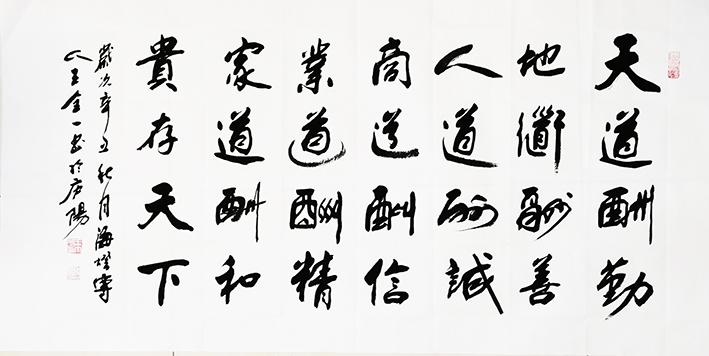 天道酬勤
地衜酬善
人道酬誠
商道酬信
業道酬精
家道酬和
貴存天下
歲次辛丑秋月海燈傳
人王金一書於陽